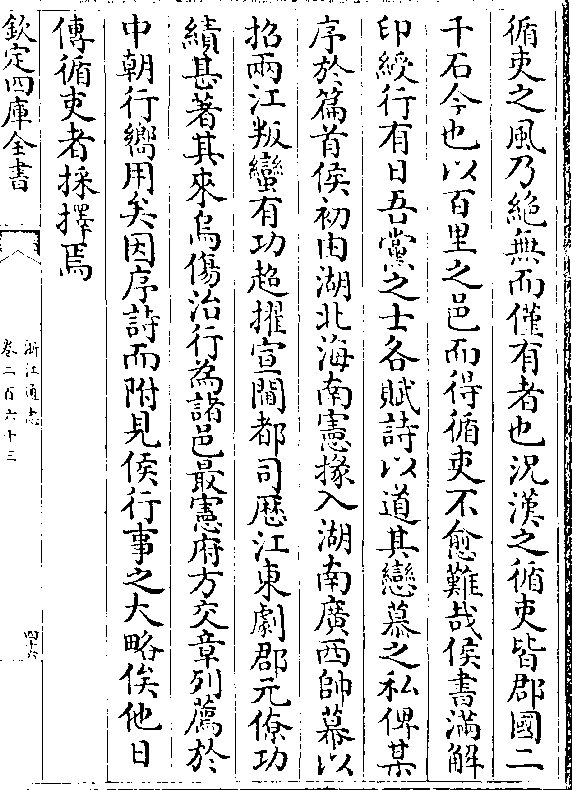 循吏之風乃絶無而僅有者也況漢之循吏皆郡國二
千石今也以百里之邑而得循吏不愈難哉侯書滿解
印綬行有日吾黨之士各賦詩以道其戀慕之私俾某
序於篇首侯初由湖北海南憲掾入湖南廣西帥幕以
招兩江叛蠻有功超擢宣閫都司歴江東劇郡元僚功
績甚著其來烏傷治行為諸邑最憲府方交章列薦於
中朝行嚮用矣因序詩而附見侯行事之大略俟他日
傳循吏者採擇焉
欽定四庫全書
浙江通志
卷二百六十三
四十六